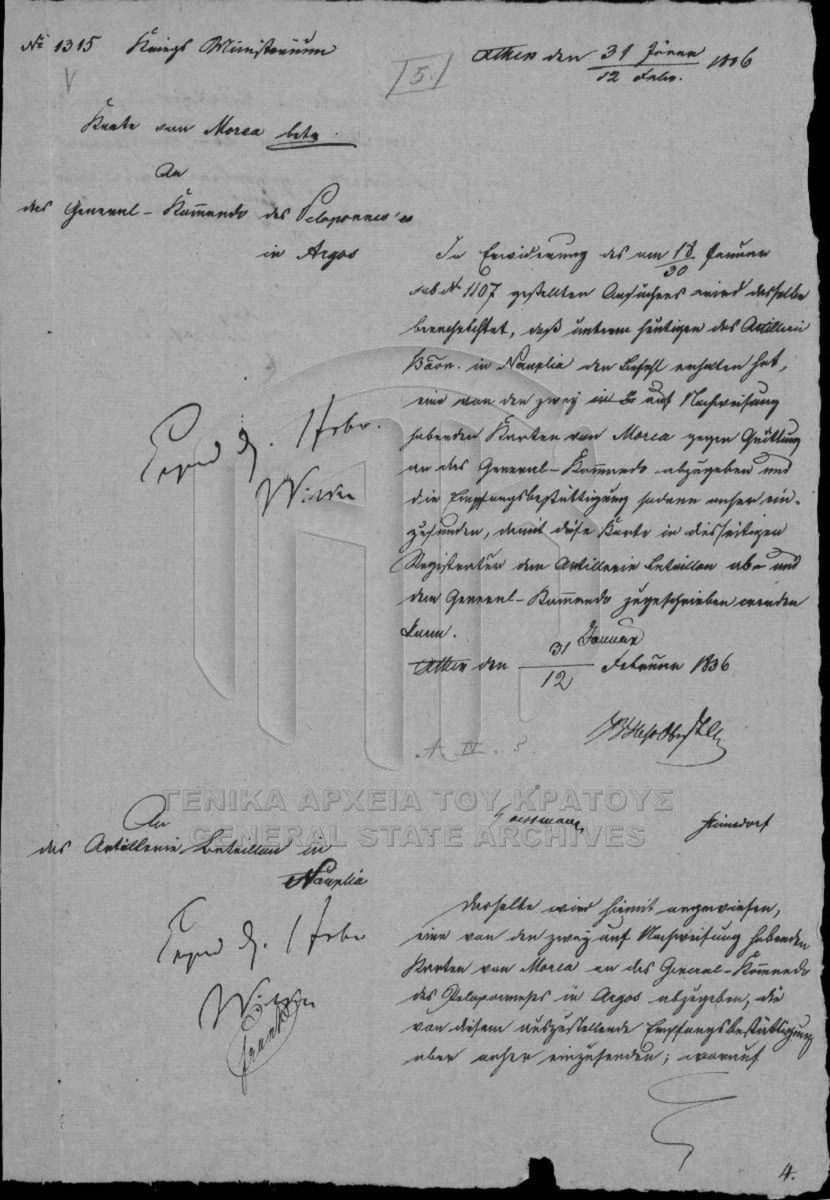 No 1315 Kriegs Ministerium
Athen den 31 Jänner / 12 Febr. 1836
[5.]
Karte von Morea betr.
An
das General-Kom̄ando des Peloponnes'es
in Argos
In Erwiderung des am 18 / 30 Januar
sub No 1107 gestellten Ansuchens wird dasselbe
benachrichtet, daß unterm heutigen das Artillerie
Baon. in Nauplia den Befehl erhalten hat,
eine von den zwey auf Nachweisung
habenden Karten von Morea gegen Quittung
an das General-Kom̄ando abzugeben und
die Empfangsbestättigung sodann anher ein-
zusenden, damit diese Karte in diesseitigen
Registratur dem Artillerie Bataillon ab- und
dem General-Kom̄ando zugeschrieben werden
kann.
Athen den 31 Januar / 12 Februar 1836
Exped d. 1 Febr.
A IV. 3.
ΓΕΝΙΚΑ ΑΡΧΕΙΑ ΤΟΥ ΚΡΑΤΟΥΣ
GENERAL STATE ARCHIVES
An
das Artillerie Bataillon in
Nauplia
Exped d. 1 Febr
Frank
Dasselbe wird hiemit angewiesen,
eine von den zwey auf Nachweisung habenden
Karten von Morea an das General-Kom̄ando
des Peloponneses in Argos abzugeben, die
von diesem auszustellende Empfangsbestättigung
aber anher einzusenden; worauf
4.